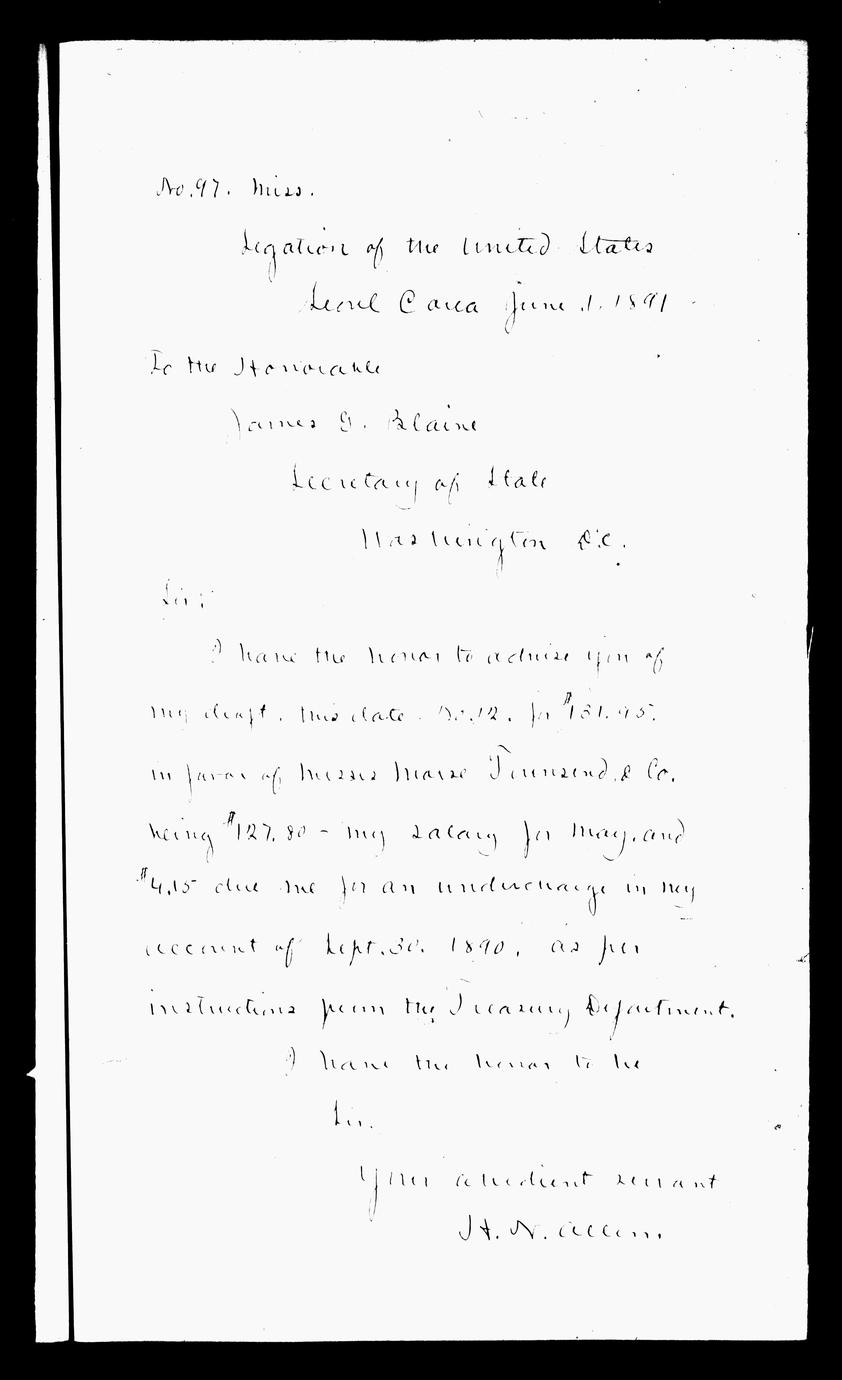 No. 97. Miss.
Legation of the United States
Seoul Corea June 1. 1891
To the Honorable
James G. Blaine
Secretary of State
Washington D.C.
Sir:
I have the honor to advise you of
my draft, this date, No. 12, for $131.95.
in favor of Messrs Morse Townsend & Co.
being $127.80 - my salary for May, and
$4.15 due me for an undercharge in my
account of Sept. 30. 1890, as per
instructions from the Treasury Department.
I have the honor to be
Sir.
Your obedient servant
H. N. Allen.